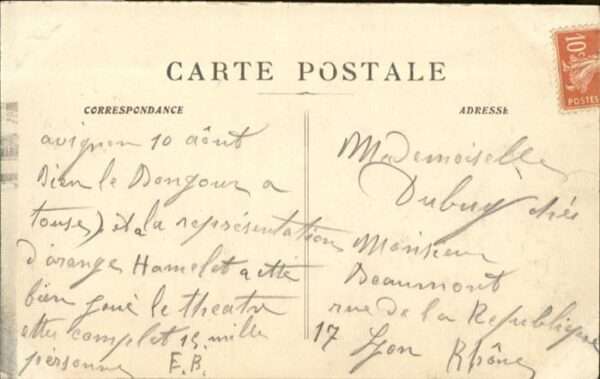 CARTE POSTALE
CORRESPONDANCE
avignon 10 aôut
Bien le Bongour a
touse) et la représentation
d'orange Hamelet a etté
bien joué le theatre
etter complet 15 mille
personne E.B.
ADRESSE
Mademoiselle
Dubuy chée
Monsieur
Beaumont
rue de la Republique
17 Lyon Rhône
10c
POSTES